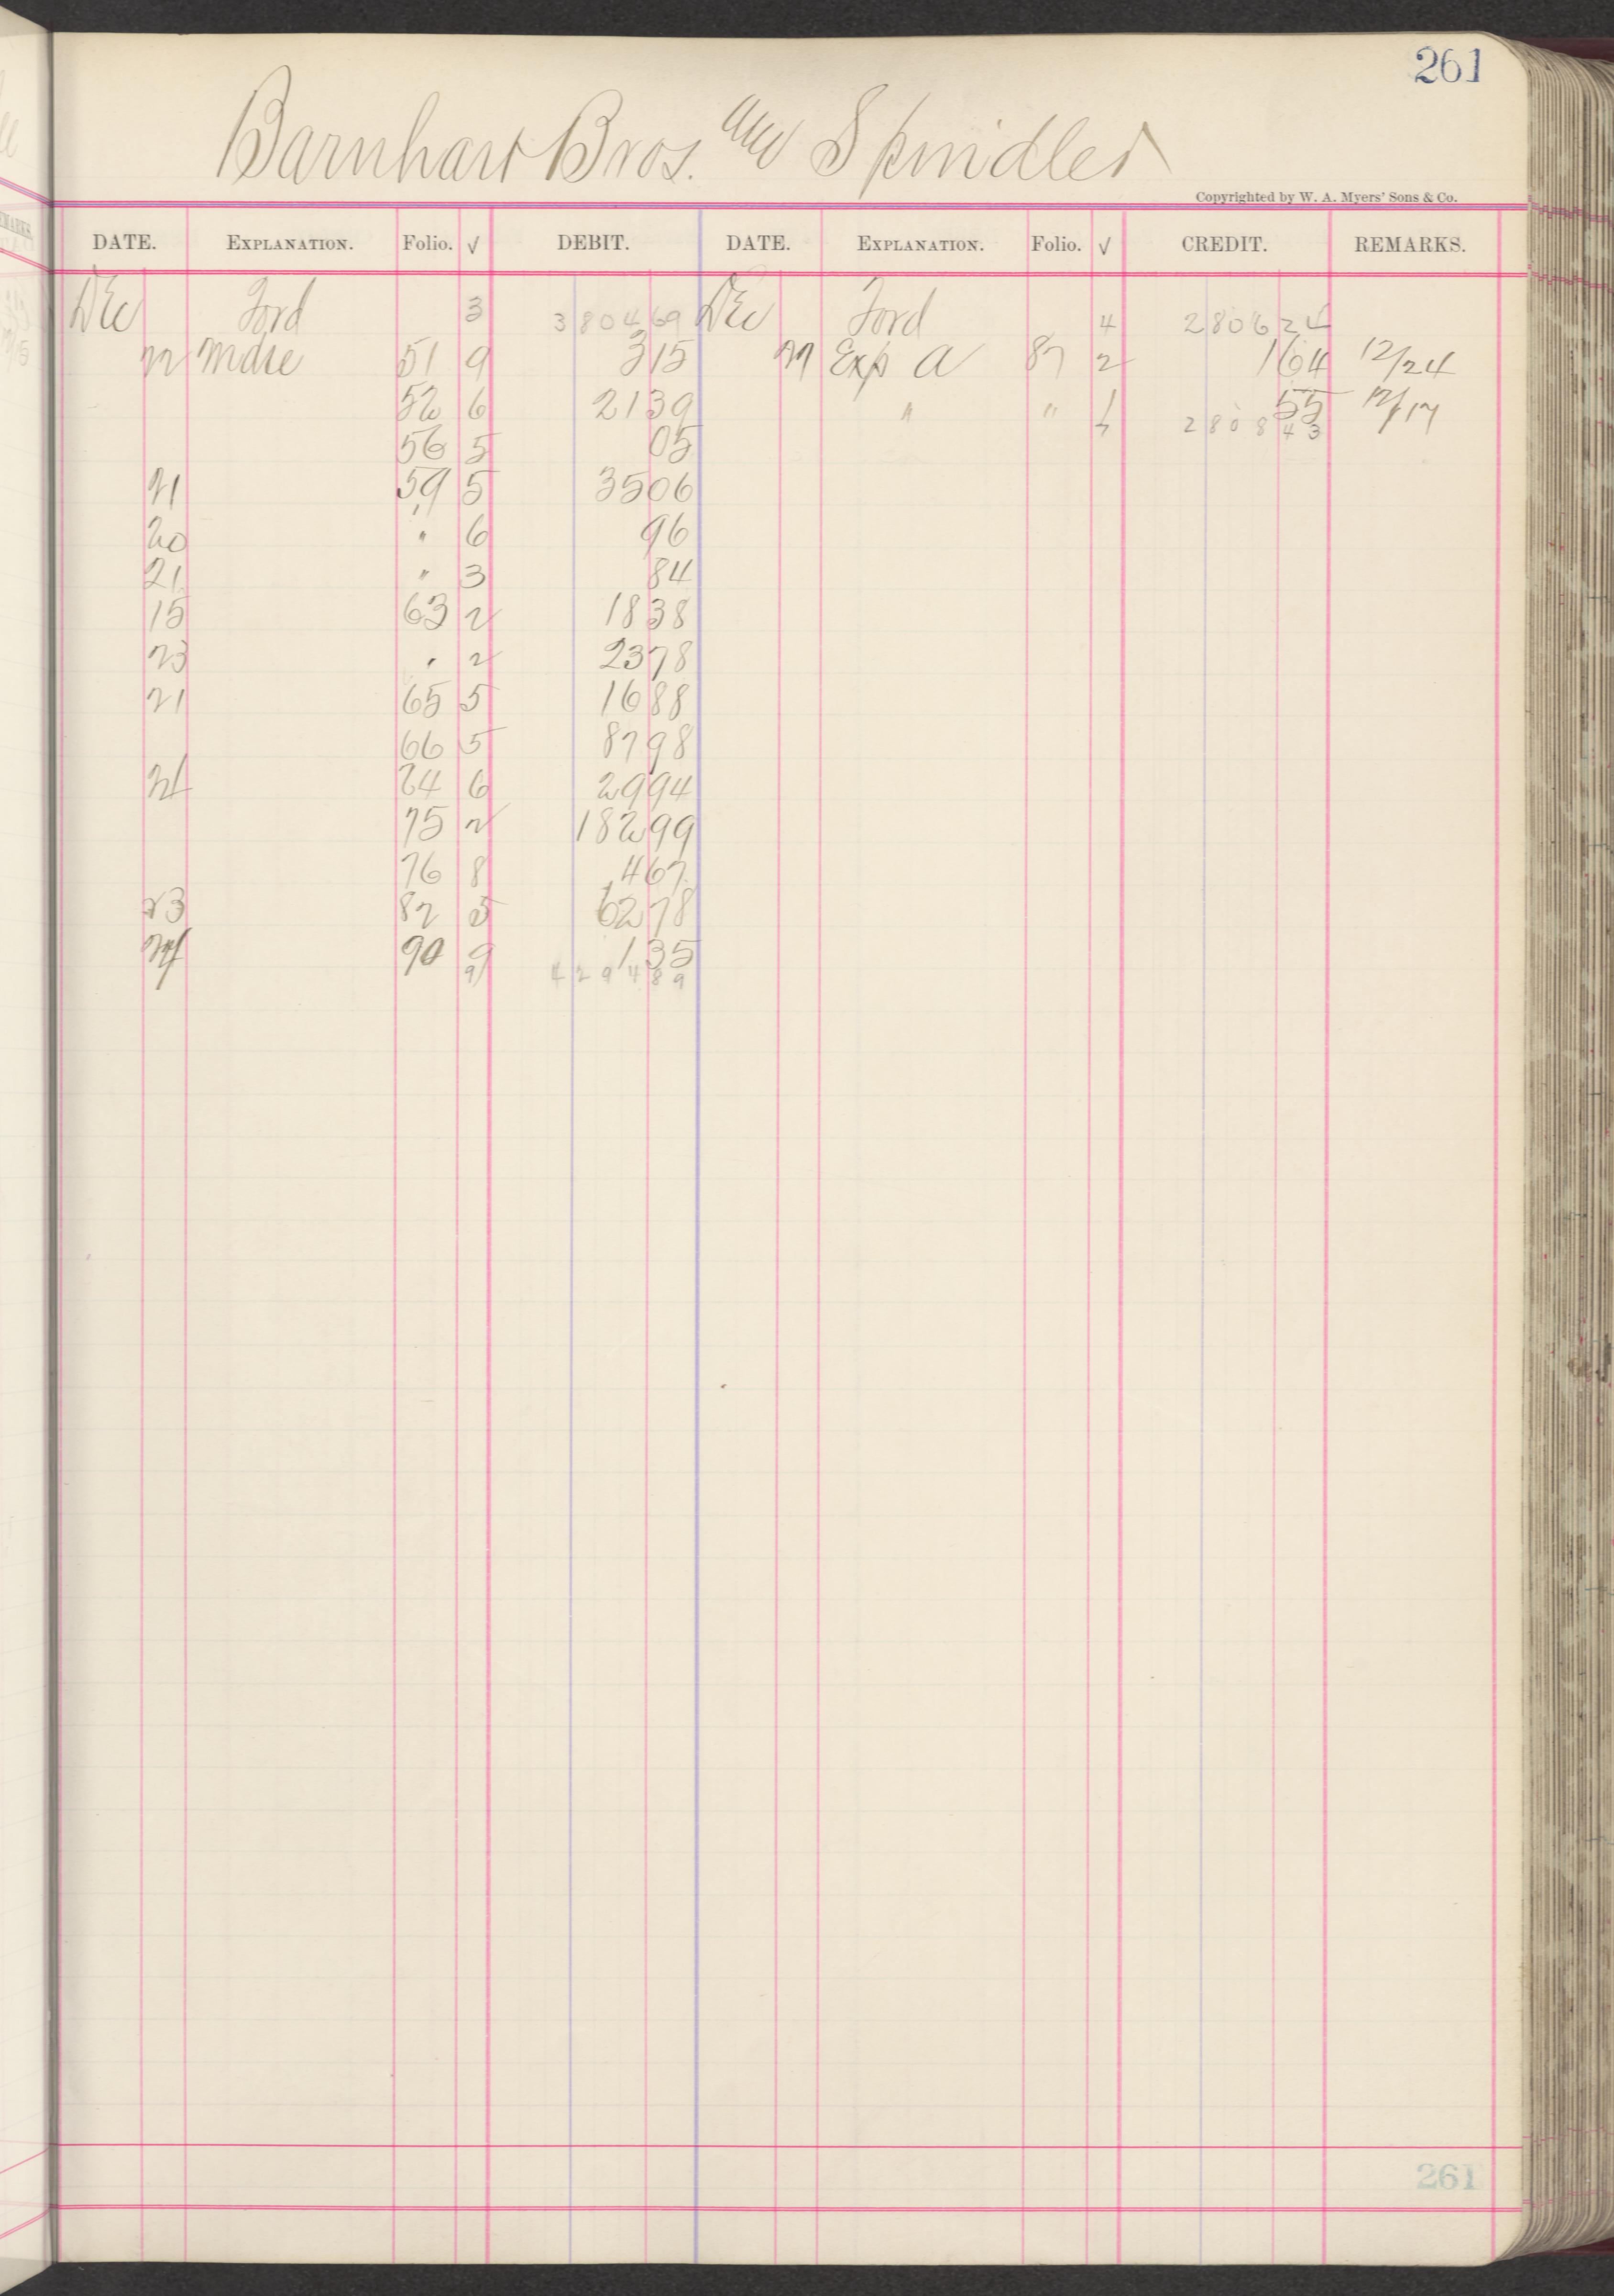 261
Barnhart Bros. and Spindler
Copyrighted by W. A. Myers' Sons & Co.
DATE. EXPLANATION. Folio. √ DEBIT. DATE. EXPLANATION. Folio. √ CREDIT. REMARKS.
Dec Ford 3 3804 69 Dec Ford 4 2806 24
22 Mdse 51 9 3 15 27 Exp a 87 2 1 64 12/24
52 6 21 39 " " 1 55 12/17
7 2808 43
56 5 05
21 59 5 35 06
20 " 6 96
21 " 3 84
15 63 2 18 38
23 " 2 23 78
21 65 5 16 88
66 5 87 98
24 74 6 29 94
75 2 182 99
76 8 4 67
23 82 5 62 78
24 90 9 1 35
9 4294 89
261